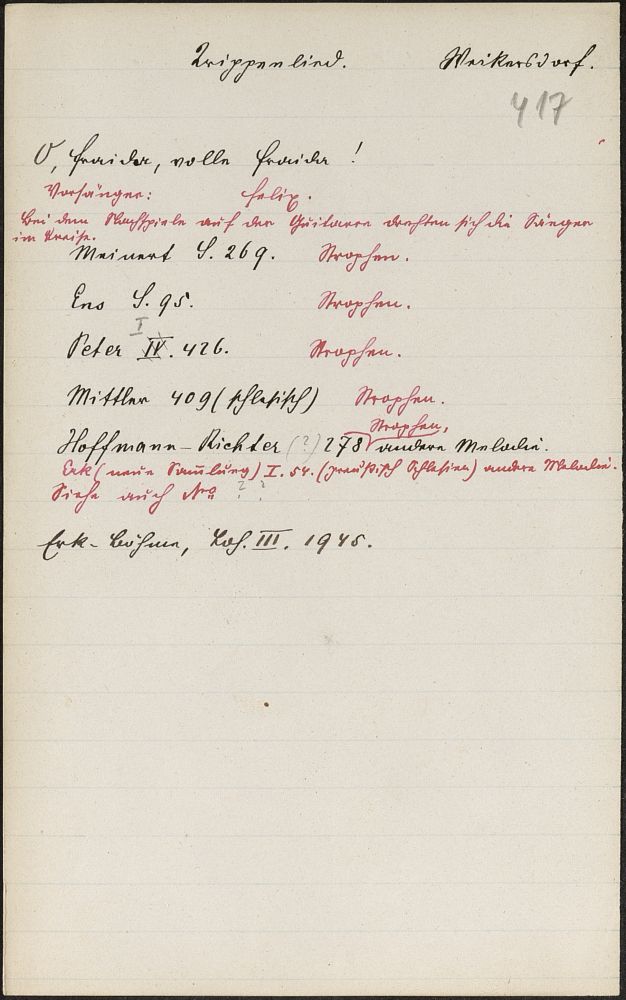 Krippenlied. Weikersdorf.
417
O, fraida, volle fraida!
Vorsänger: Felix.
Bei dem Nachspiele auf der Guitarre drehten sich die Sänger
im Kreise.
Meinert S. 269. Strophen.
Ens S. 95. Strophen.
I
Peter IV. 426. Strophen.
Mittler 409 (schlesisch) Strophen.
Strophen,
Hoffmann-Richter (?) 278 andere Melodie.
Erk (neue Sam̅lung) I. 54. (preußisch Schlesien) andere Melodie.
Siehe auch Nro ? ?
Erk-Böhme, Ldh. III. 1945.